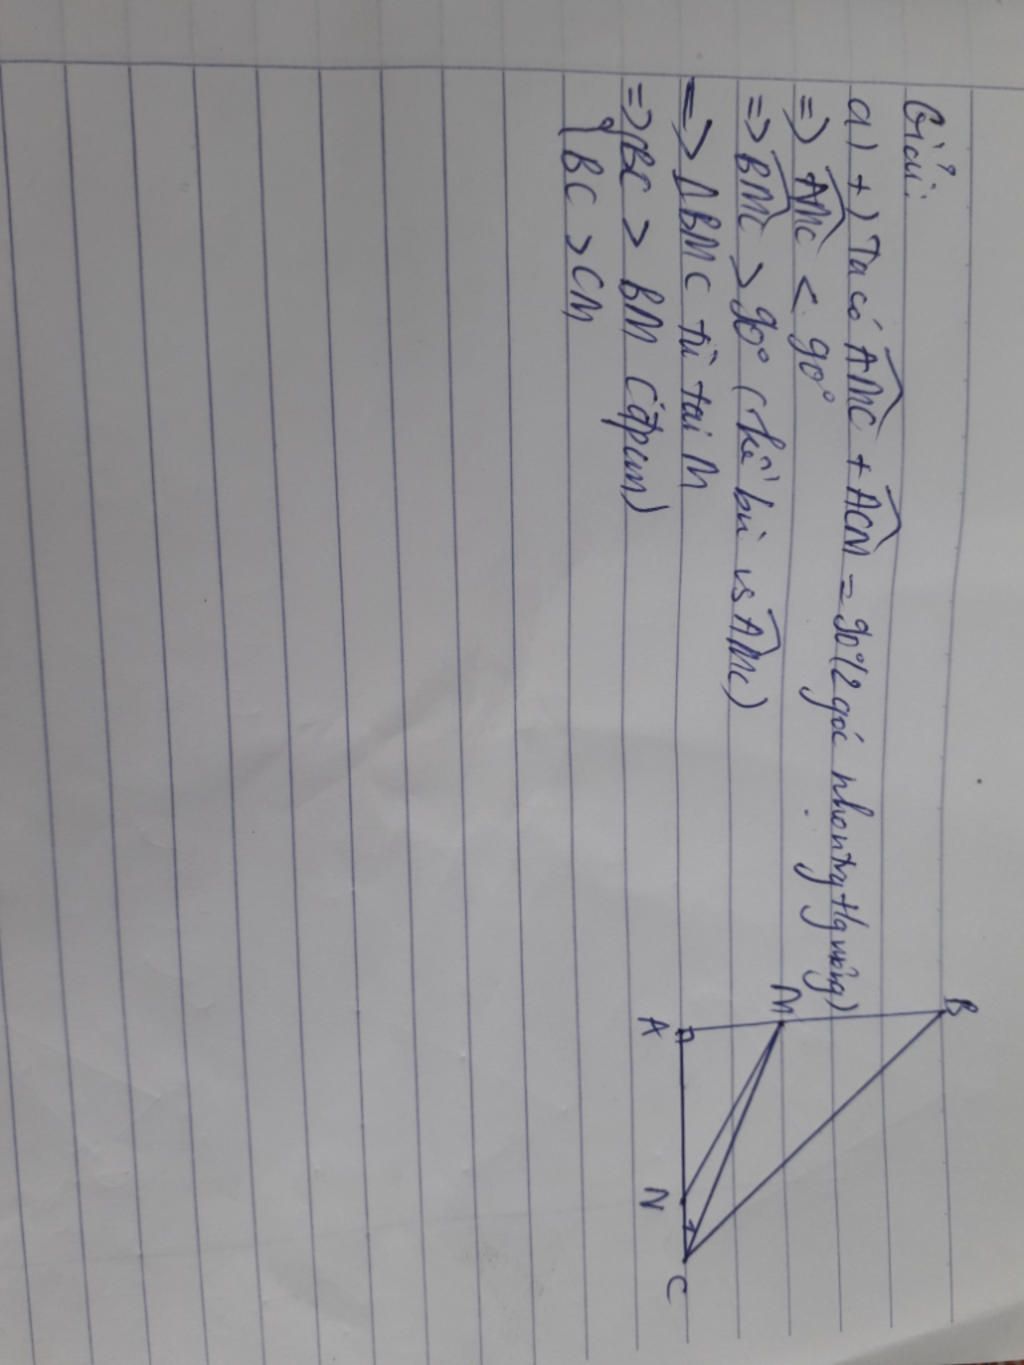 Giải:
a) +) Ta có AMC + ACM = 90° (2 góc nhọn trg t/g vuông)
=> AMC < 90°
=> BMC > 90° (kề bù vs AMC)
=> ΔBMC tù tại M
=> { BC > BM (đpcm)
BC > CM
B
M
A
N
C